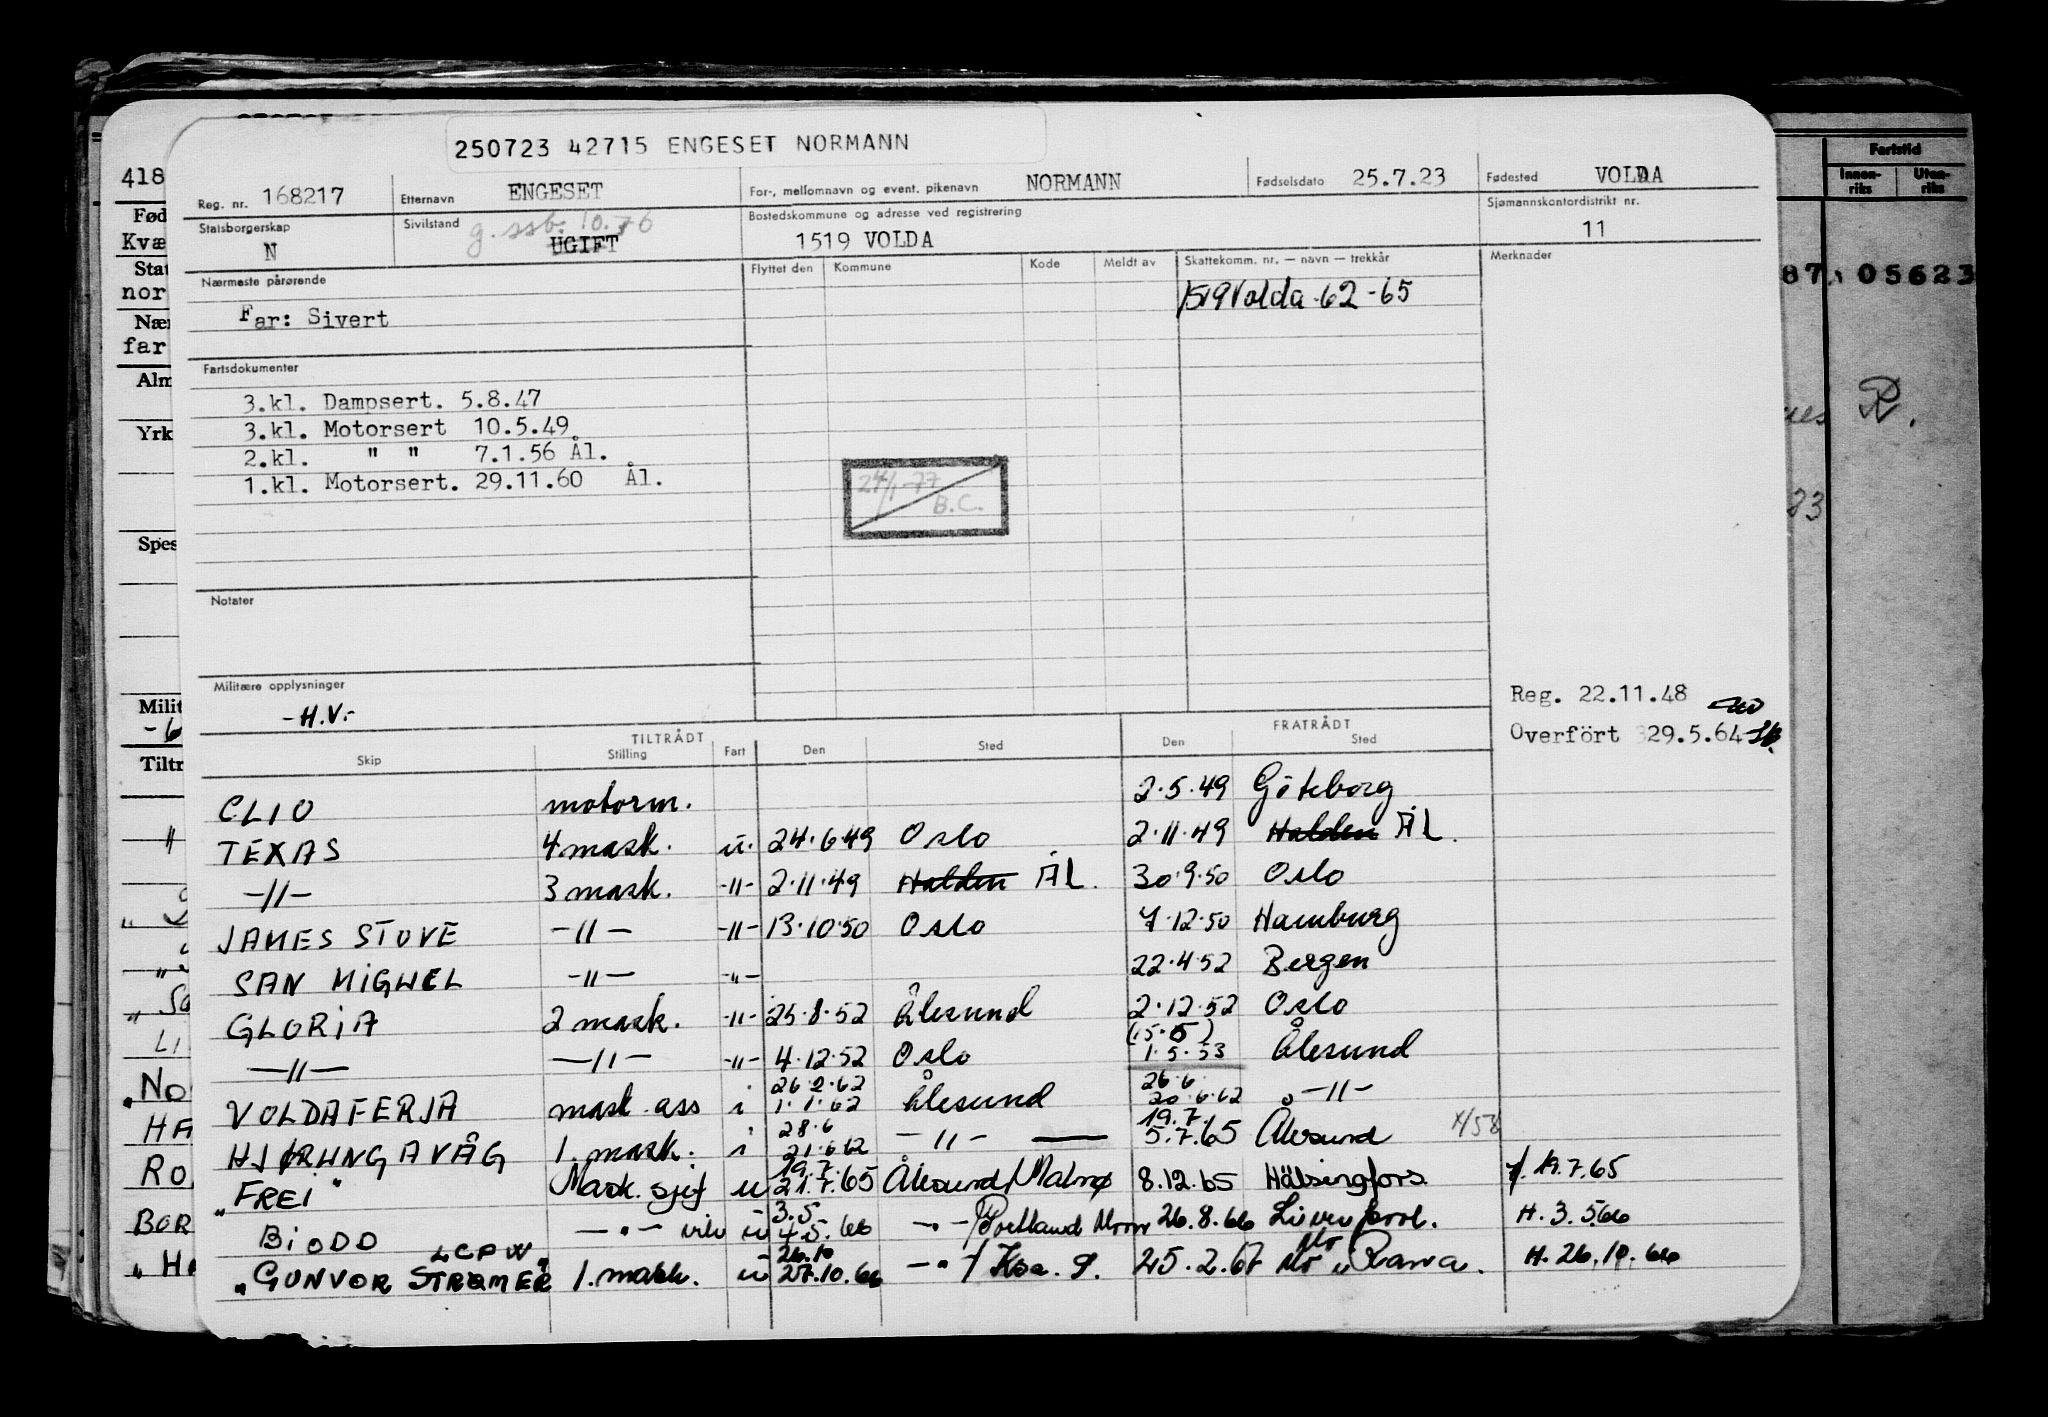 250723 42715 ENGESET NORMANN
Reg. nr. 168217 Etternavn ENGESET For-, mellomnavn og event. pikenavn NORMANN Fødselsdato 25.7.23 Fødested VOLDA
Statsborgerskap N Sivilstand g. ssb. 10.76 UGIFT Bostedskommune og adresse ved registrering 1519 VOLDA Sjømannskontordistrikt nr. 11
Nærmeste pårørende Flyttet den Kommune Kode Meldt av Skattekomm. nr. — navn — trekkår Merknader
Far: Sivert
1519 Volda -62 -65
Fartsdokumenter
3.kl. Dampsert. 5.8.47
3.kl. Motorsert 10.5.49
2.kl. " " 7.1.56 Ål.
1.kl. Motorsert. 29.11.60 Ål.
24/1-77
B.C.
Notater
Militære opplysninger
-H.V.-
Reg. 22.11.48
Overfört 29.5.64
TILTRÅDT FRATRÅDT
Skip Stilling Fart Den Sted Den Sted
CLIO motorm. 2.5.49 Göteborg
TEXAS 4 mask. u. 24.6.49 Oslo 2.11.49 Halden ÅL.
-"- 3 mask. -"- 2.11.49 Halden ÅL. 30.9.50 Oslo
JAMES STOVE -"- -"- 13.10.50 Oslo 7.12.50 Hamburg
SAN MIGUEL -"- -"- 22.4.52 Bergen
GLORIA 2 mask. -"- 25.8.52 Ålesund 2.12.52 Oslo
(15.5)
-"- -"- -"- 4.12.52 Oslo 1.5.53 Ålesund
26.2.62 26.6
VOLDAFERJA mask. ass i 1.1.62 Ålesund 20.6.62 -"-
28.6 19.7.
HJØRUNGAVÅG 1. mask. i 21.6.62 -"- 5.7.65 Ålesund
19.7.
"FREI" Mask. sjef u 21.7.65 Ålesund/Malmø 8.12.65 Hälsingfors 19.7.65
3.5
BIODD -"- u 4.5.66 -"- 26.8.66 Liverpool. H. 3.5.66
LCPW 26.10
"GUNVOR STRØMER" 1. mask. u 27.10.66 -"- 25.2.67 Mo i Rana. H. 26.10.66
418
Fød
Kvæ
Stat
nor
Nær
far
Alm
Yrk
Spes
Milit
-6
Tiltr
HA
BOR
Fartstid
Innen-riks Uten-riks
87 05623